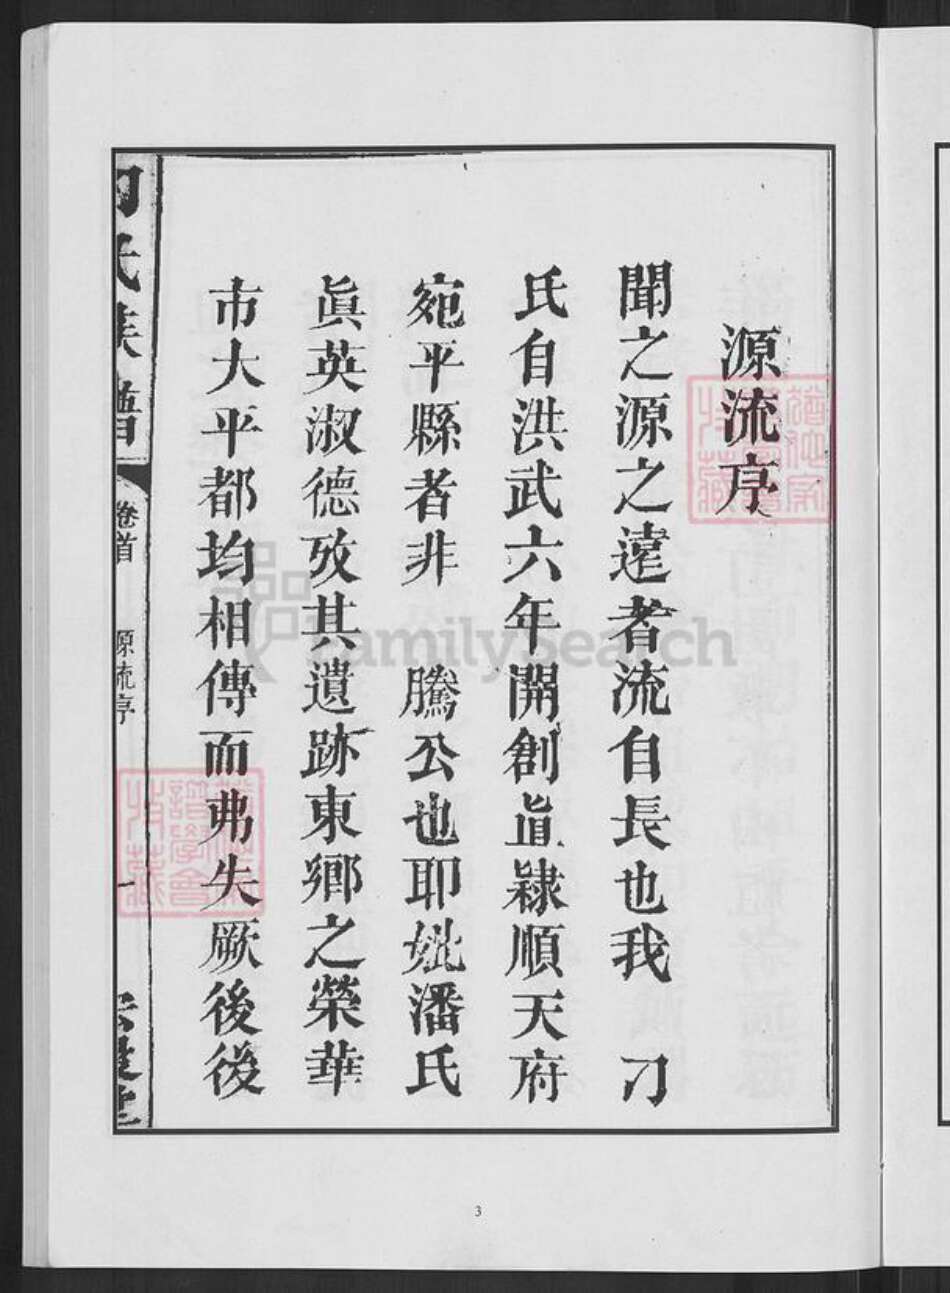 源流序
聞之源之遠者流自長也我 刁
氏自洪武六年開創直隷順天府
宛平縣者非 騰公也耶妣潘氏
眞英淑德攷其遺跡東鄉之榮華
市大平都均相傳而弗失厥後後
刁氏族譜
卷首 源流序 一
FamilySearch
3